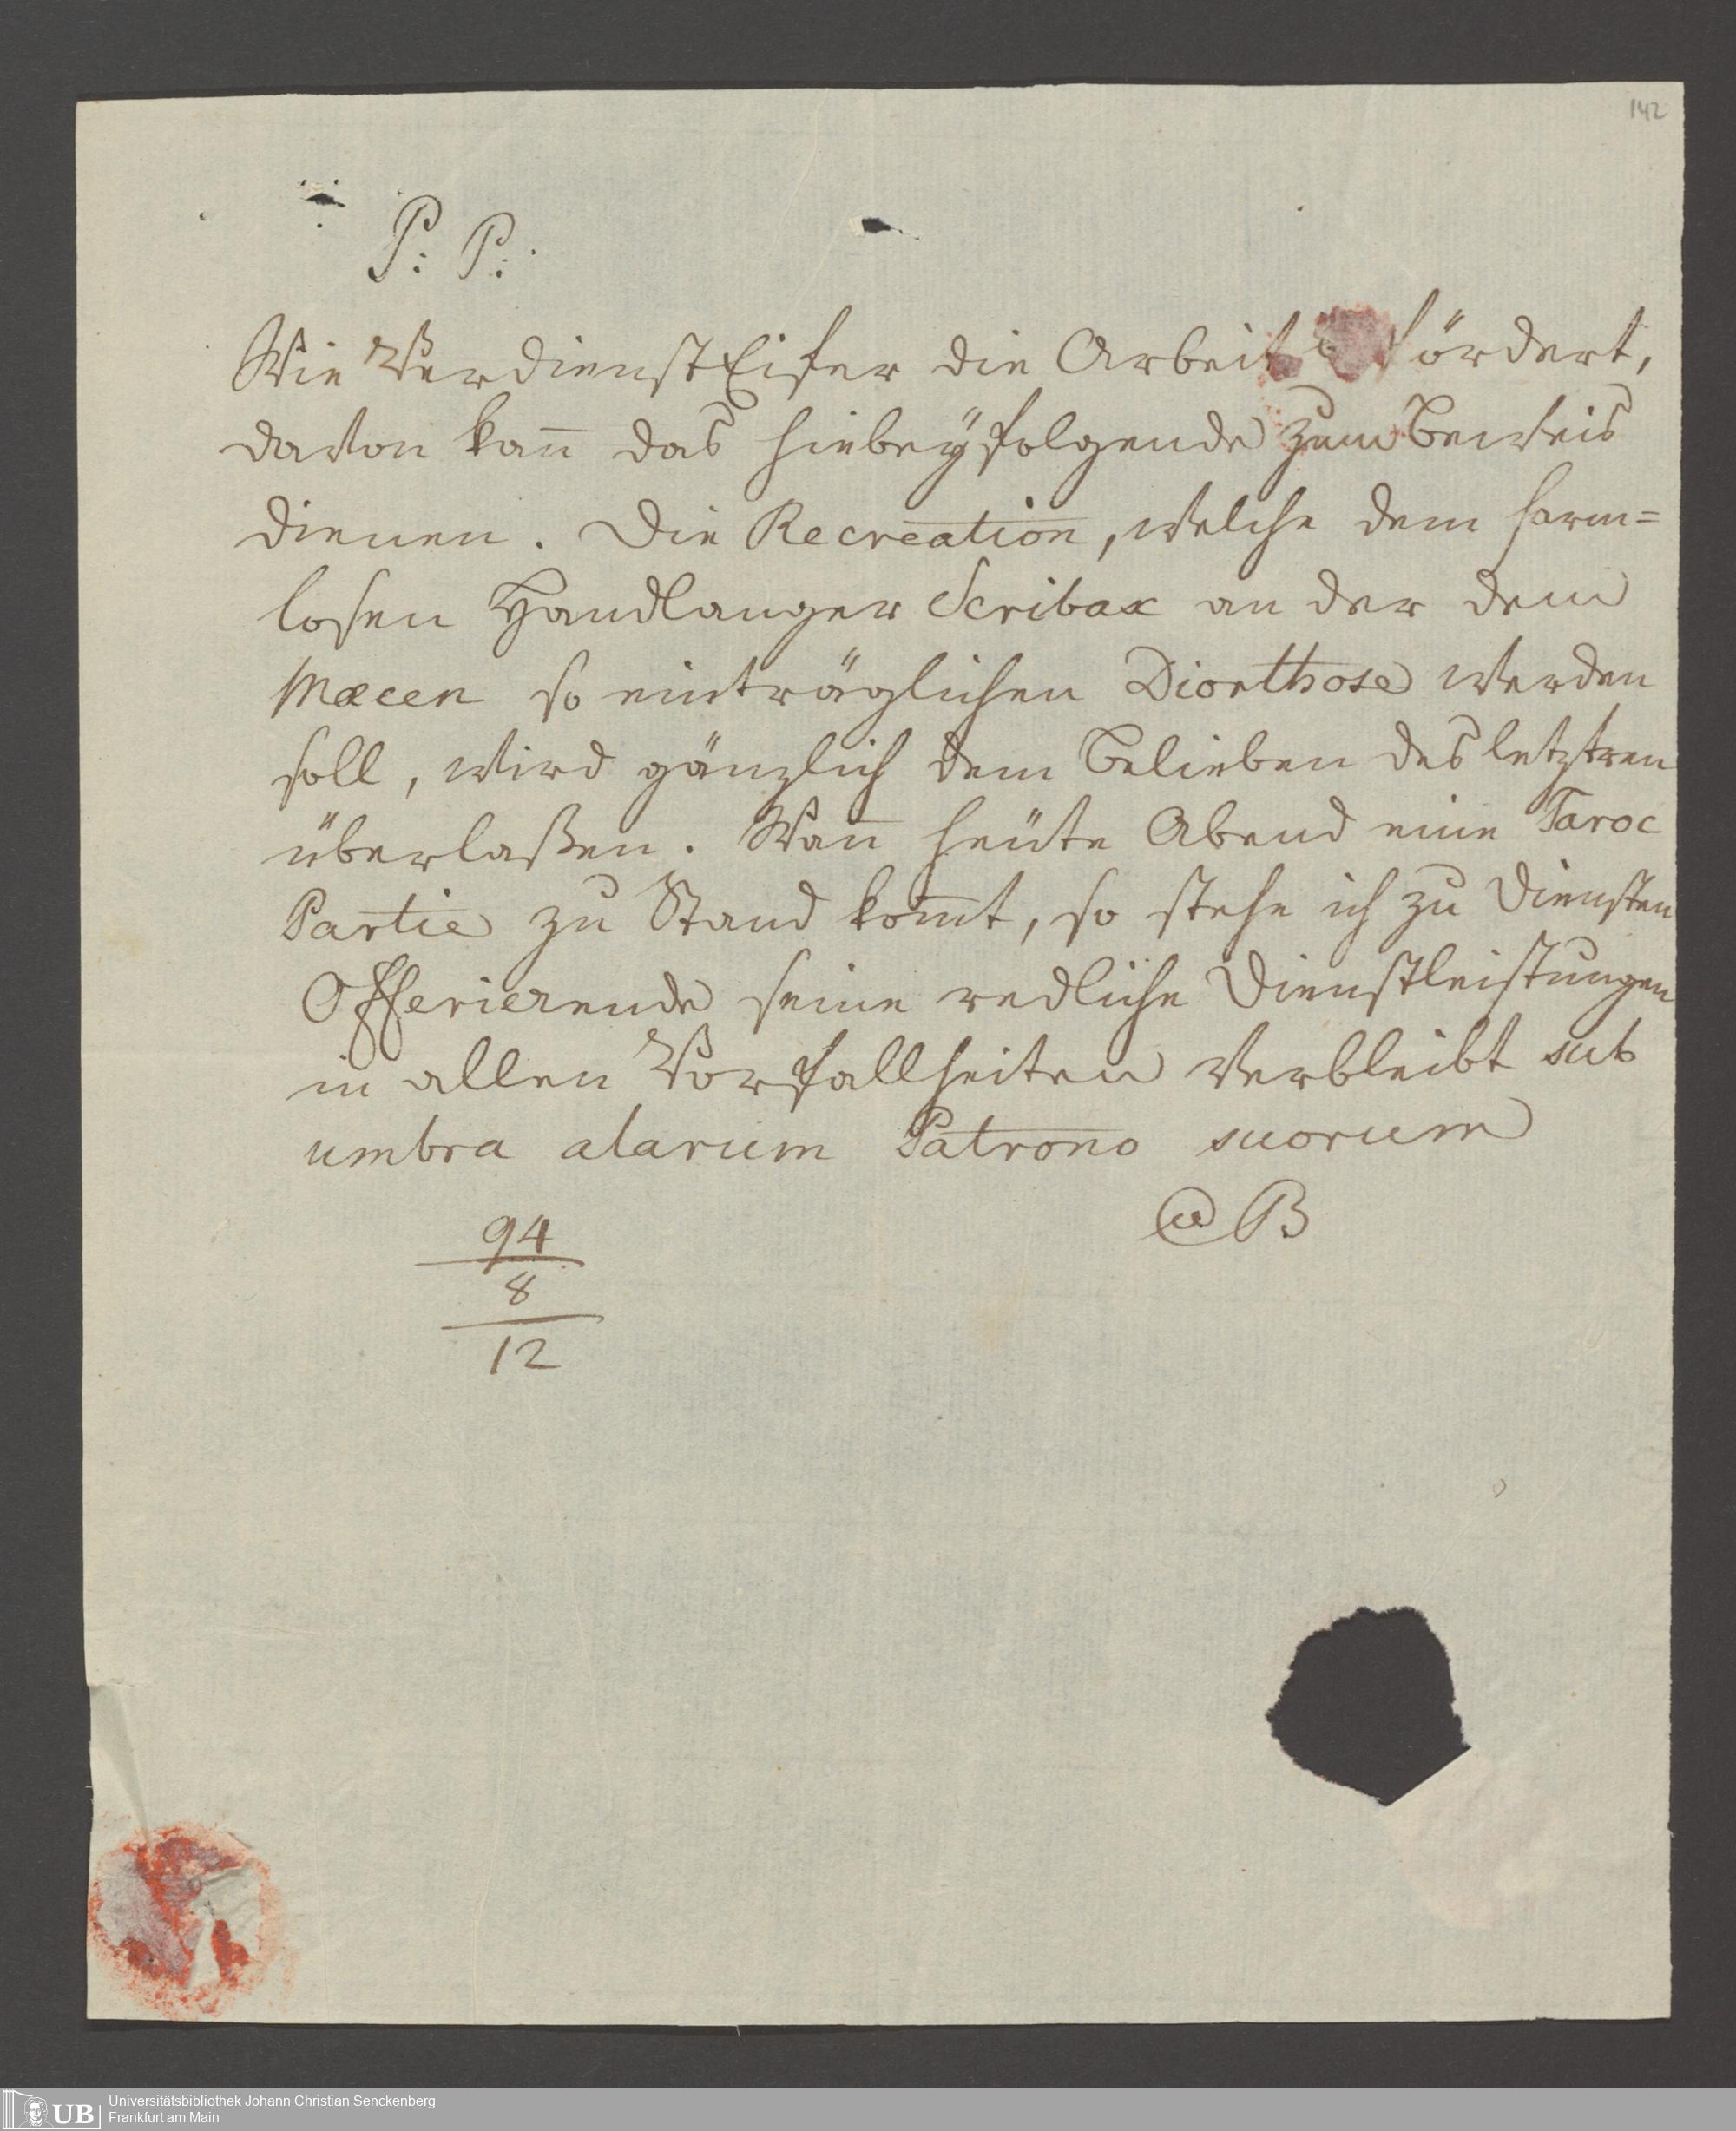 142
P: P:
Wie VerdienstEifer die Arbeit fördert,
davon kan̅ das hiebeyfolgende zum Beweis
dienen. Die Recreation, welche dem harm=
losen Handlanger Scribax an der dem
Mæcen so einträglichen Diorthose werden
soll, wird gänzlich dem Belieben des letztren
überlaßen. Wan̅ heüte Abend eine Taroc
Partie zu Stand kom̅t, so stehe ich zu Diensten
Offerierende seine redliche Dienstleistungen
in allen Vorfallheiten verbleibt sub
umbra alarum Patrono suorum
B
94
8
12
UB
Universitätsbibliothek Johann Christian Senckenberg
Frankfurt am Main